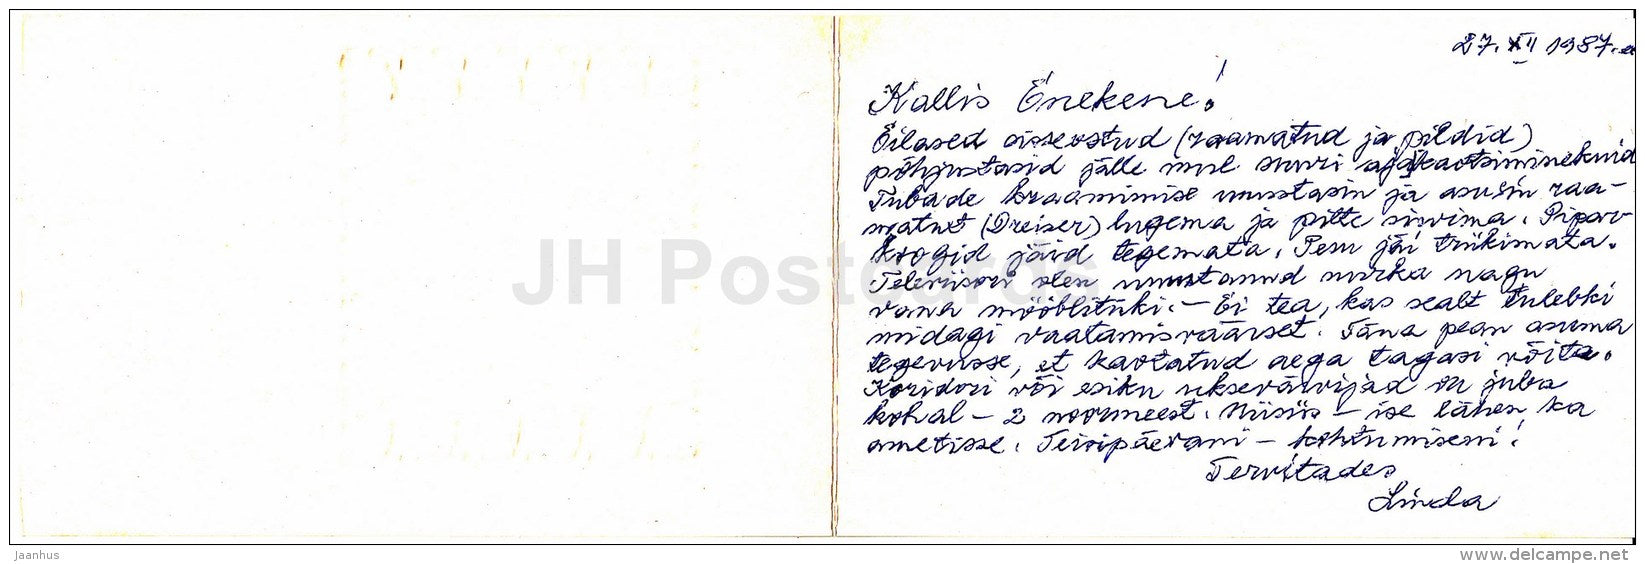 27. XII 1987.a
Kallis Enekene!
Eilased sisseostud (raamatud ja pildid)
põhjustasid jälle mul suuri ajakaotsiminekuid
Tubade kraamimise unustasin ja asusin raa-
matut (Dreiser) lugema ja pilte sirvima. Pipar-
koogid jäid tegemata. Pesu jäi triikimata.
Televiisori olen unustanud nurka nagu
vana mööblitüki. - Ei tea, kas sealt tulebki
midagi vaatamisväärset. Täna pean asuma
tegevusse, et kaotatud aega tagasi võita.
Koridori või esiku uksevärvijad on juba
kohal - 2 noormeest. Niisiis - ise lähen ka
ametisse. Teisipäevani - kohtumiseni!
Tervitades
Linda
JH Postcards
Jaanhus
www.delcampe.net